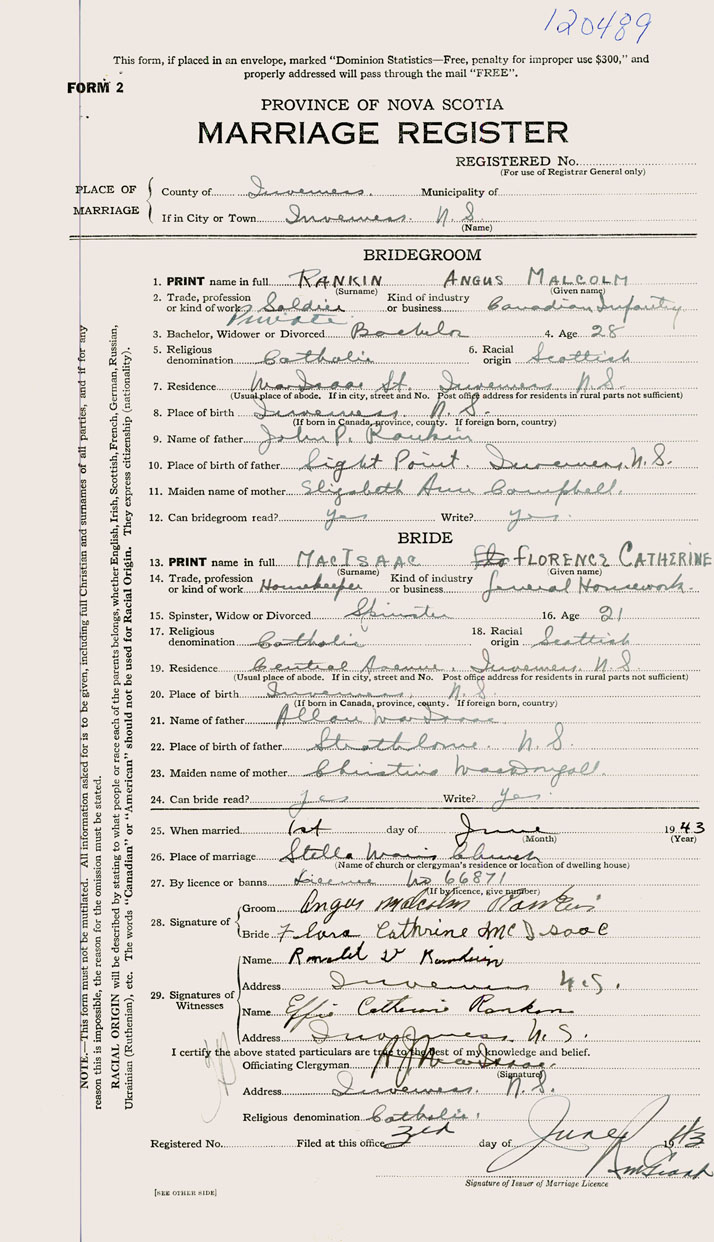 120489
This form, if placed in an envelope, marked "Dominion Statistics—Free, penalty for improper use $300," and
properly addressed will pass through the mail "FREE".
FORM 2
PROVINCE OF NOVA SCOTIA
MARRIAGE REGISTER
REGISTERED No.
(For use of Registrar General only)
PLACE OF MARRIAGE
County of Inverness. Municipality of
If in City or Town Inverness. N.S.
(Name)
BRIDEGROOM
1. PRINT name in full RANKIN ANGUS MALCOLM
(Surname) (Given name)
2. Trade, profession or kind of work Soldier Private Kind of industry or business Canadian Infantry
3. Bachelor, Widower or Divorced Bachelor 4. Age 28
5. Religious denomination Catholic 6. Racial origin Scottish
7. Residence MacIsaac St. Inverness N.S.
(Usual place of abode. If in city, street and No. Post office address for residents in rural parts not sufficient)
8. Place of birth Inverness. N.S.
(If born in Canada, province, county. If foreign born, country)
9. Name of father John P. Rankin
10. Place of birth of father Sight Point. Inverness, N.S.
11. Maiden name of mother Elizabeth Ann Campbell.
12. Can bridegroom read? yes Write? yes.
BRIDE
13. PRINT name in full MACISAAC FLORENCE CATHERINE
(Surname) (Given name)
14. Trade, profession or kind of work Housekeeper Kind of industry or business General Housework.
15. Spinster, Widow or Divorced Spinster 16. Age 21
17. Religious denomination Catholic 18. Racial origin Scottish
19. Residence Central Avenue. Inverness N.S.
(Usual place of abode. If in city, street and No. Post office address for residents in rural parts not sufficient)
20. Place of birth Inverness. N.S.
(If born in Canada, province, county. If foreign born, country)
21. Name of father Allan MacIsaac
22. Place of birth of father Strathlorne. N.S.
23. Maiden name of mother Christina MacDougall.
24. Can bride read? yes Write? yes.
25. When married 1st day of June 1943
(Month) (Year)
26. Place of marriage Stella Maris Church
(Name of church or clergyman's residence or location of dwelling house)
27. By licence or banns License No 66871
(If by licence, give number)
28. Signature of
Groom Angus Malcolm Rankin
Bride Flora Cathrine McIsaac
29. Signatures of Witnesses
Name Ronald Rankin
Address Inverness N.S.
Name Effie Catherine Rankin
Address Inverness. N.S.
I certify the above stated particulars are true to the best of my knowledge and belief.
Officiating Clergyman MacIsaac
(Signature)
Address Inverness. N.S.
Religious denomination Catholic.
Registered No. Filed at this office 3rd day of June 1943
Signature of Issuer of Marriage Licence
[SEE OTHER SIDE]
NOTE.—This form must not be mutilated. All information asked for is to be given, including full Christian and surnames of all parties, and if for any
reason this is impossible, the reason for the omission must be stated.
RACIAL ORIGIN will be described by stating to what people or race each of the parents belongs, whether English, Irish, Scottish, French, German, Russian,
Ukrainian (Ruthenian), etc. The words "Canadian" or "American" should not be used for Racial Origin. They express citizenship (nationality).